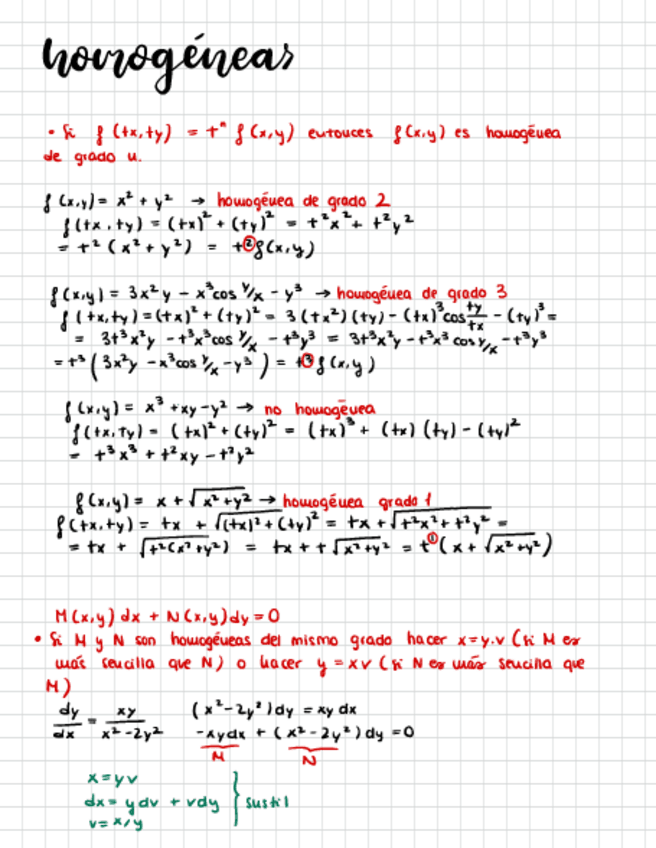 homogéneas
• Si f(tx,ty) = tⁿ f(x,y) entonces f(x,y) es homogénea
de grado n.
f(x,y) = x² + y² → homogénea de grado 2
f(tx,ty) = (tx)² + (ty)² = t²x² + t²y²
= t²(x² + y²) = t²f(x,y)
f(x,y) = 3x²y - x³cos y/x - y³ → homogénea de grado 3
f(tx,ty) = (tx)² + (ty)² = 3(tx²)(ty) - (tx)³cos ty/tx - (ty)³ =
= 3t³x²y - t³x³cos y/x - t³y³ = 3t³x²y - t³x³ cos y/x - t³y³
= t³(3x²y - x³cos y/x - y³) = t³f(x,y)
f(x,y) = x³ + xy - y² → no homogénea
f(tx,ty) = (tx)² + (ty)² = (tx)³ + (tx)(ty) - (ty)²
= t³x³ + t²xy - t²y²
f(x,y) = x + √(x²+y²) → homogénea grado 1
f(tx,ty) = tx + √((tx)²+(ty)²) = tx + √(t²x²+t²y²) =
= tx + √(t²(x²+y²)) = tx + t√(x²+y²) = t¹(x + √(x²+y²))
M(x,y)dx + N(x,y)dy = 0
• Si M y N son homogéneas del mismo grado hacer x=y.v (si M es
más sencilla que N) o hacer y = xv (si N es más sencilla que
M)
dy/dx = xy/(x²-2y²) (x²-2y²)dy = xy dx
-xydx + (x²-2y²)dy = 0
M N
x=yv
dx= ydv + vdy } sustit
v= x/y